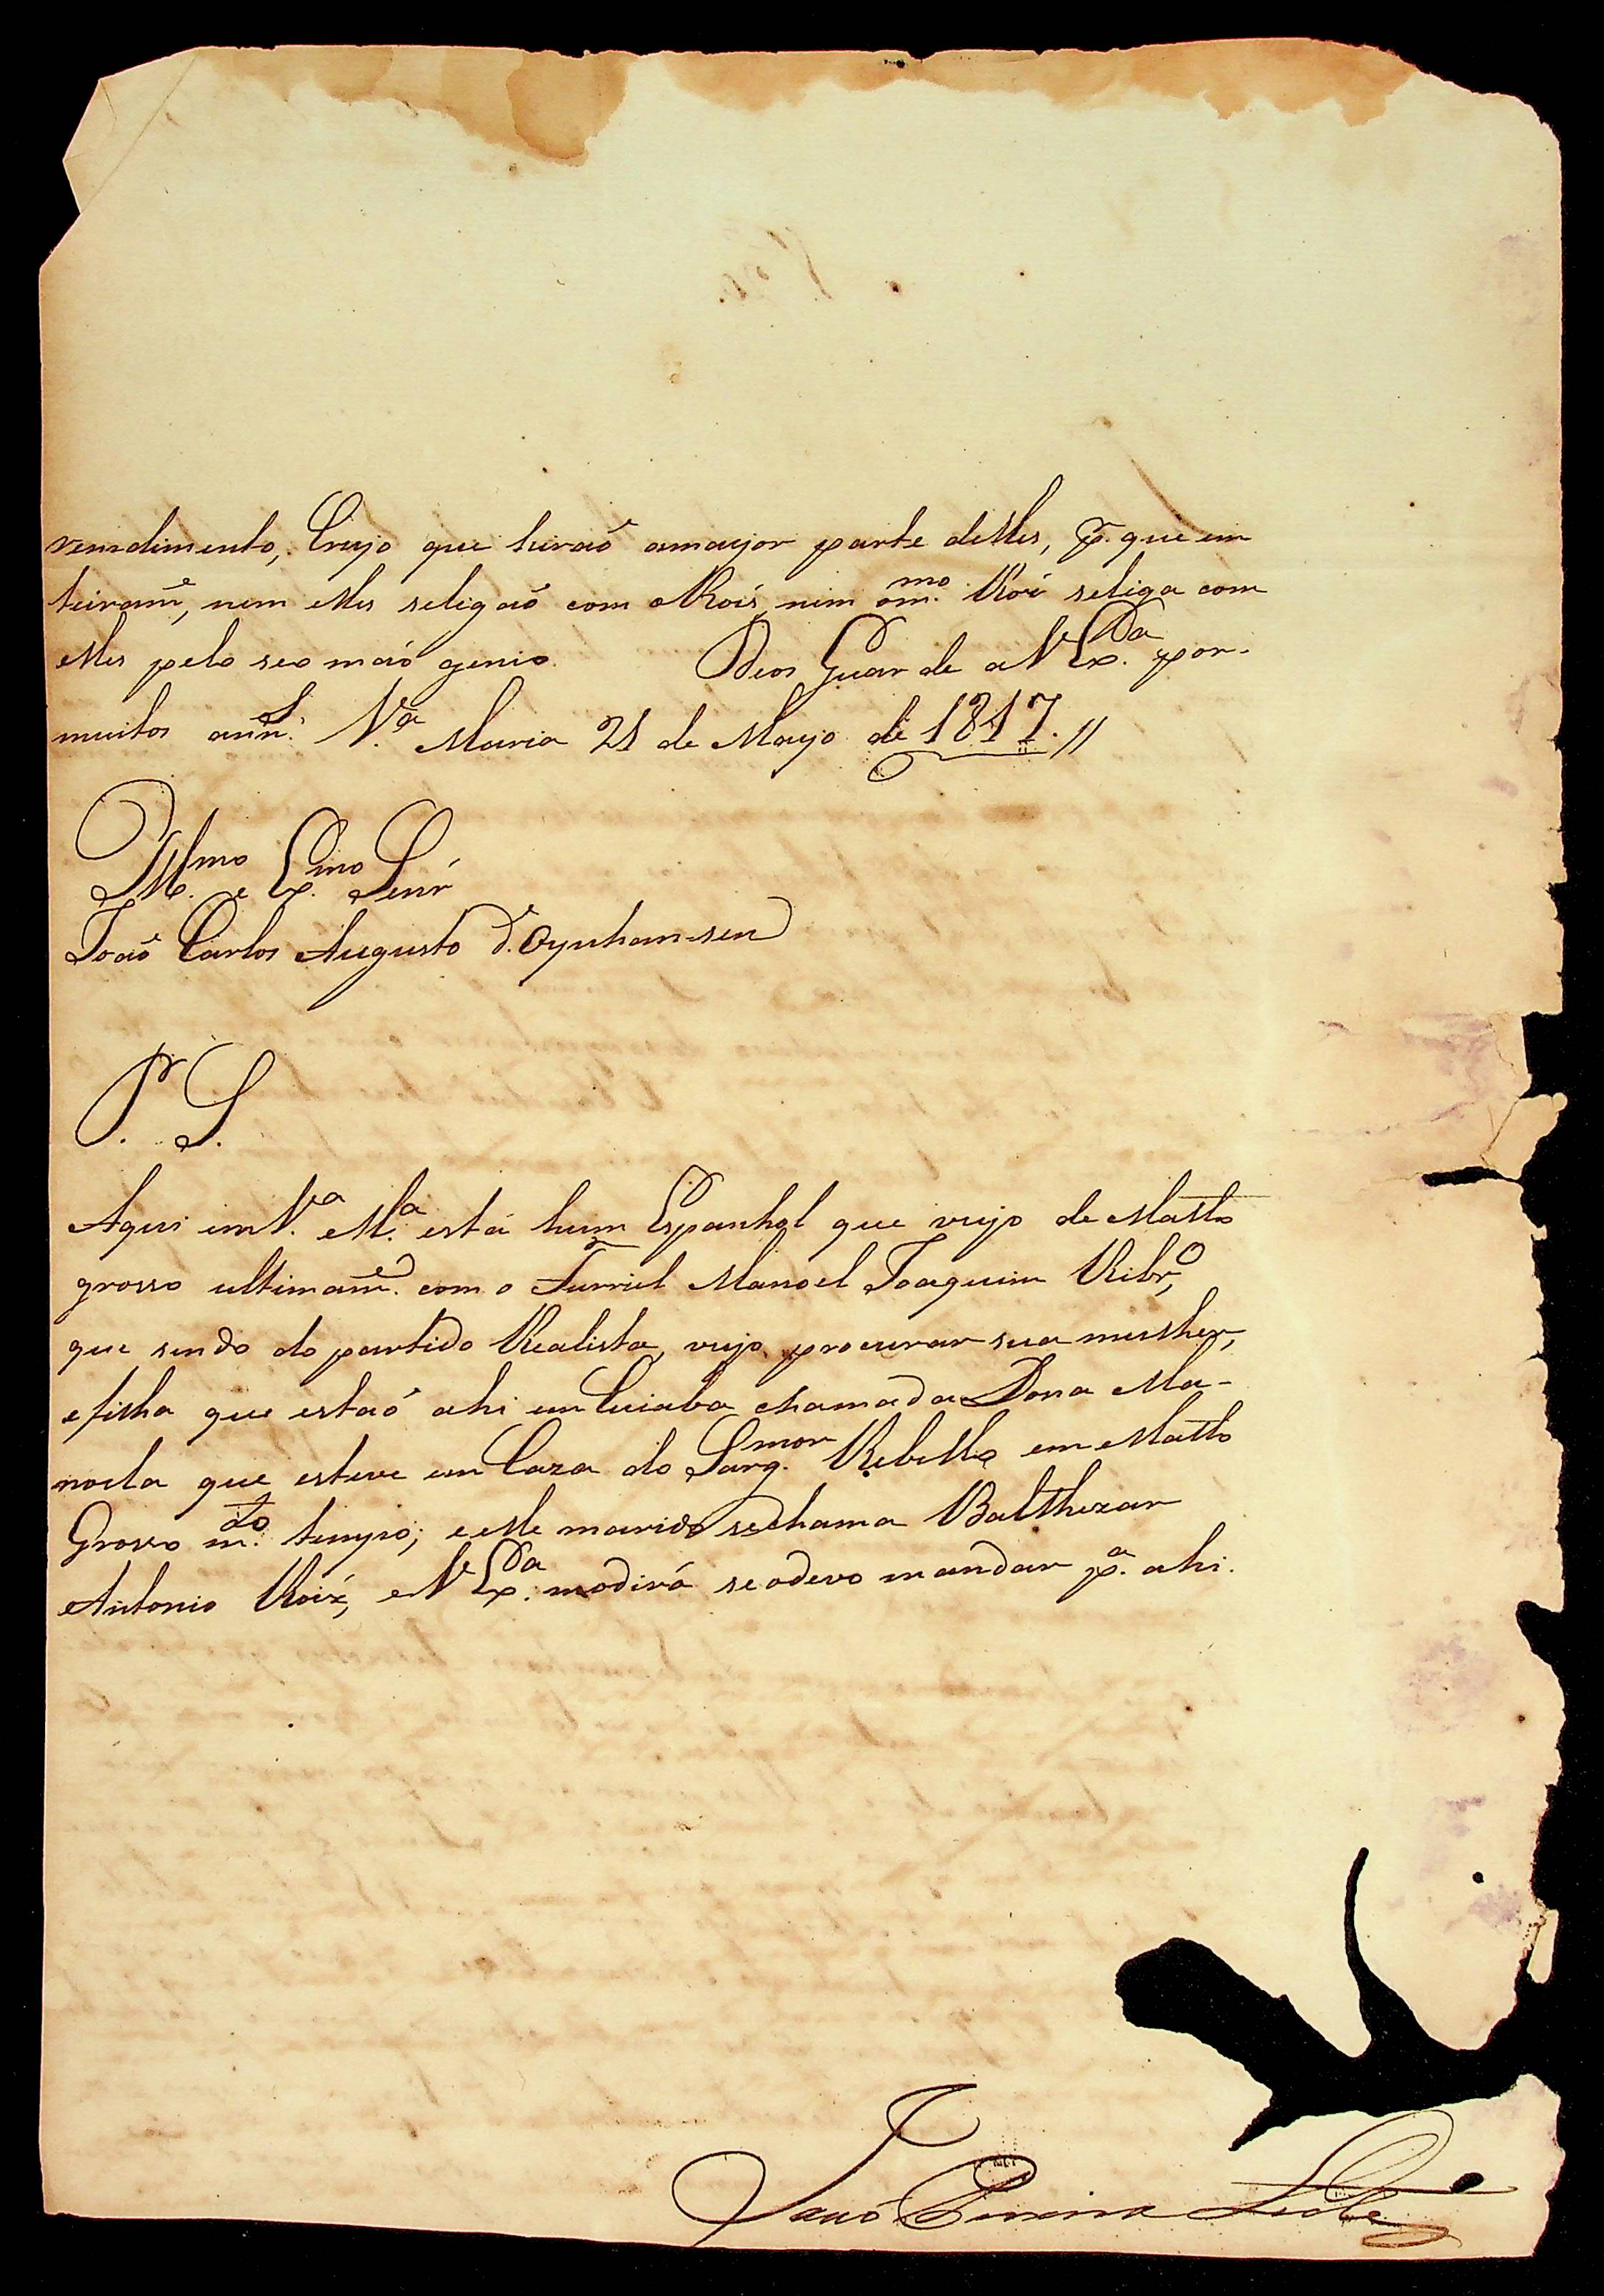 rendimento, Creyo que hiraõ amayor parte delles, p.r que em
teiram.e, nem elles seligaõ com oRois, nem om.mo Roiz seliga com
elles pelo seo maó genio. Deos Guarde aV Ex.ca por
muitos ann.s V.a Maria 21 de Mayo de 1817. //
Ill.mo e Ex.mo Senr
Joaõ Carlos Augusto d'Oynhamsen
P. S.
Aqui em V.a M.a está hum Espanhol que veyo de Matto
grosso ultimam.e com o Furriel Manoel Joaquim Ribr.o,
que sendo do partido Realista, veyo procurar sua mulher,
efilha que estaó ahi em Cuiaba chamada Dona Ma-
noela que esteve em Caza do Sarg.mor Rebello em Matto
Grosso m.to tempo; eelle marido sechama Balthezar
Antonio Roiz, eV Ex.ca modirá seodevo mandar p.a ahi.
Joaó Pereira Leite